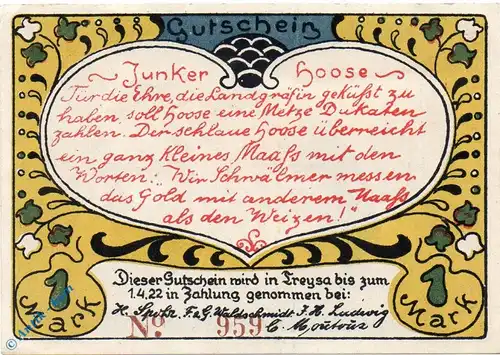 Gutschein
Junker Hoose
Für die Ehre, die Landgräfin geküßt zu
haben, soll Hoose eine Metze Dukaten
zahlen. Der schlaue Hoose überreicht
ein ganz kleines Maaß mit den
Worten: "Wir Schwälmer messen
das Gold mit anderem Maaß
als den Weizen!"
Dieser Gutschein wird in Treysa bis zum
1.4.22 in Zahlung genommen bei:
1 Mark
1 Mark
H. Spohr. F. & G. Waldschmidt F. H. Ludwig
No. 959 C. Moutoux